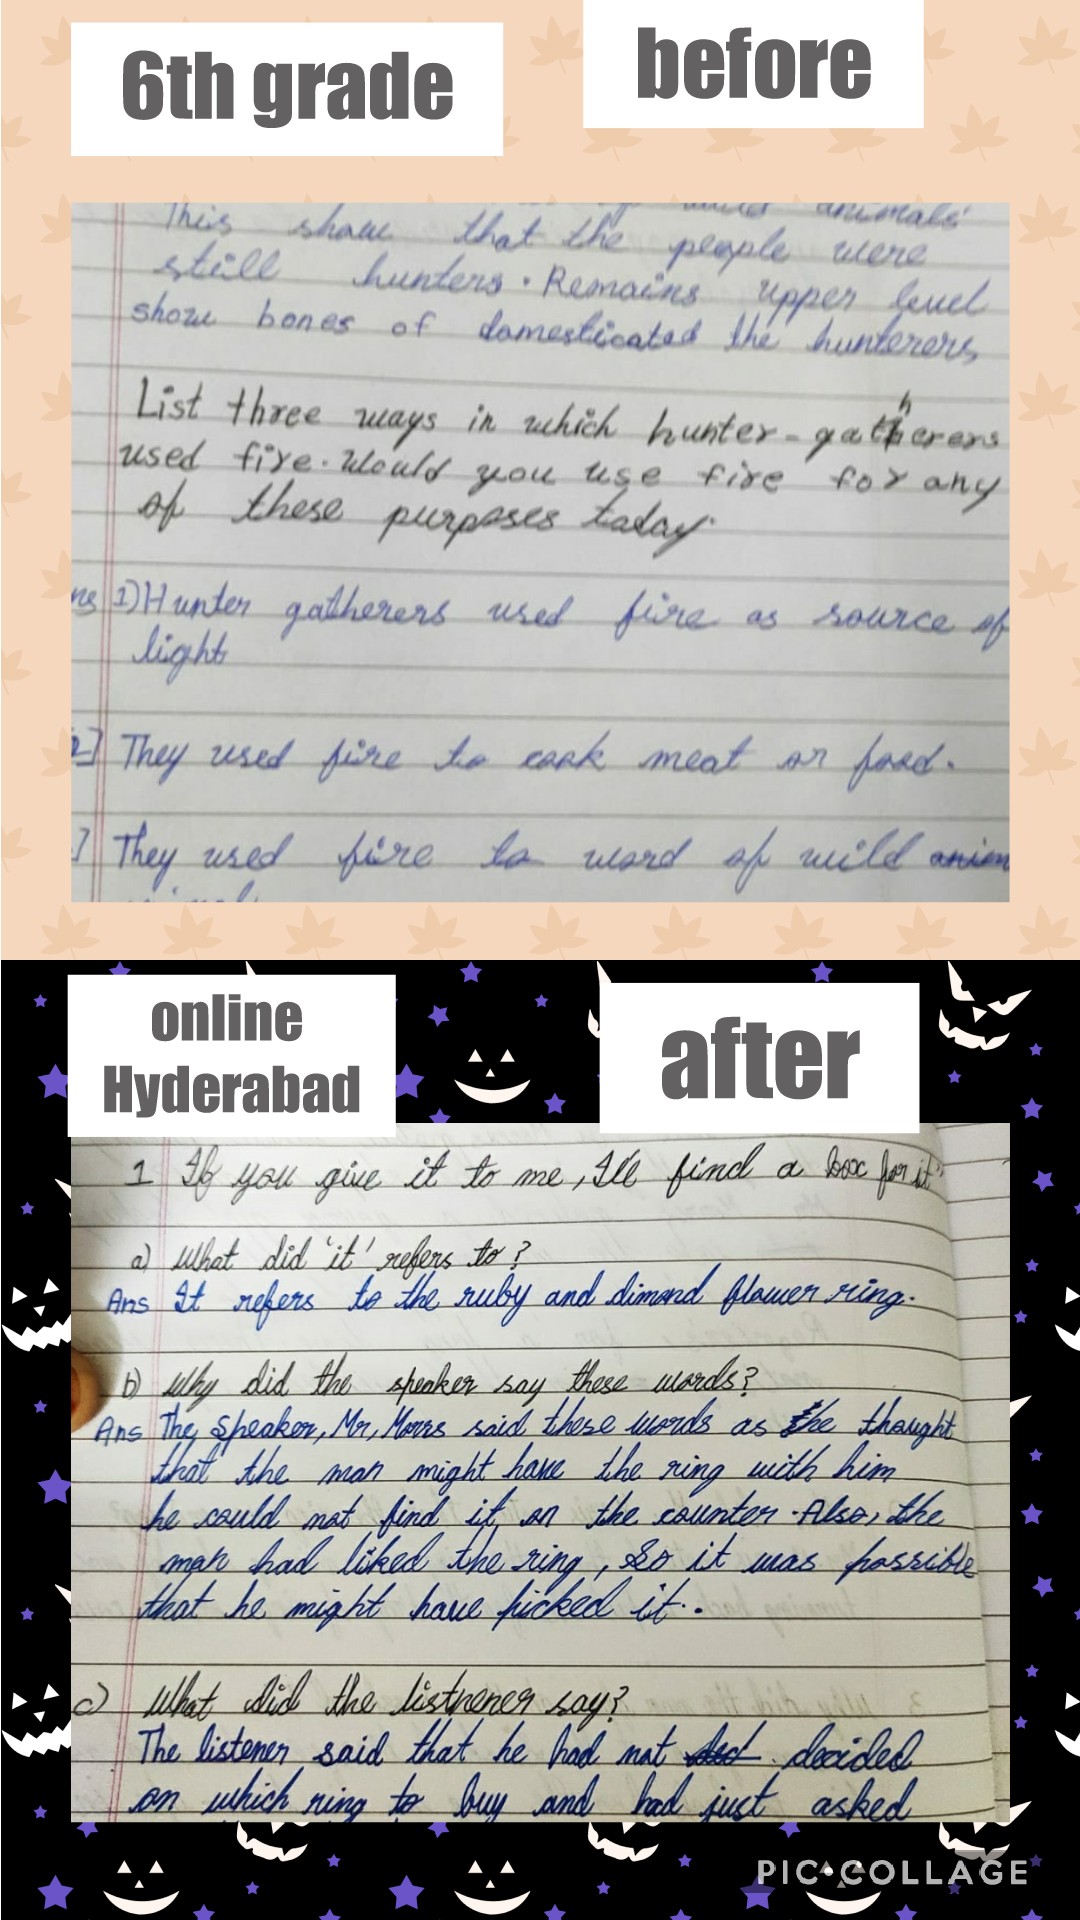 6th grade
before
This show that the people were
still hunters. Remains upper level
show bones of domesticated the hunterers
List three ways in which hunter-gatherers
used fire. Would you use fire for any
of these purposes today.
ns 1) Hunter gatherers used fire as source of
light
2] They used fire to cook meat or food.
] They used fire to ward of wild anim
online
Hyderabad
after
1 If you give it to me, I'll find a box for it"
a) What did 'it' refers to?
Ans It refers to the ruby and dimond flower ring.
b) Why did the speaker say these words?
Ans The, Speaker, Mr, Morrs said these words as the thought
that the man might have the ring with him
he could not find it, on the counter. Also, the
man had liked the ring, So it was possible
that he might have picked it..
c) What did the listnener say?
The listener said that he had not decided
on which ring to buy and had just asked
PIC•COLLAGE